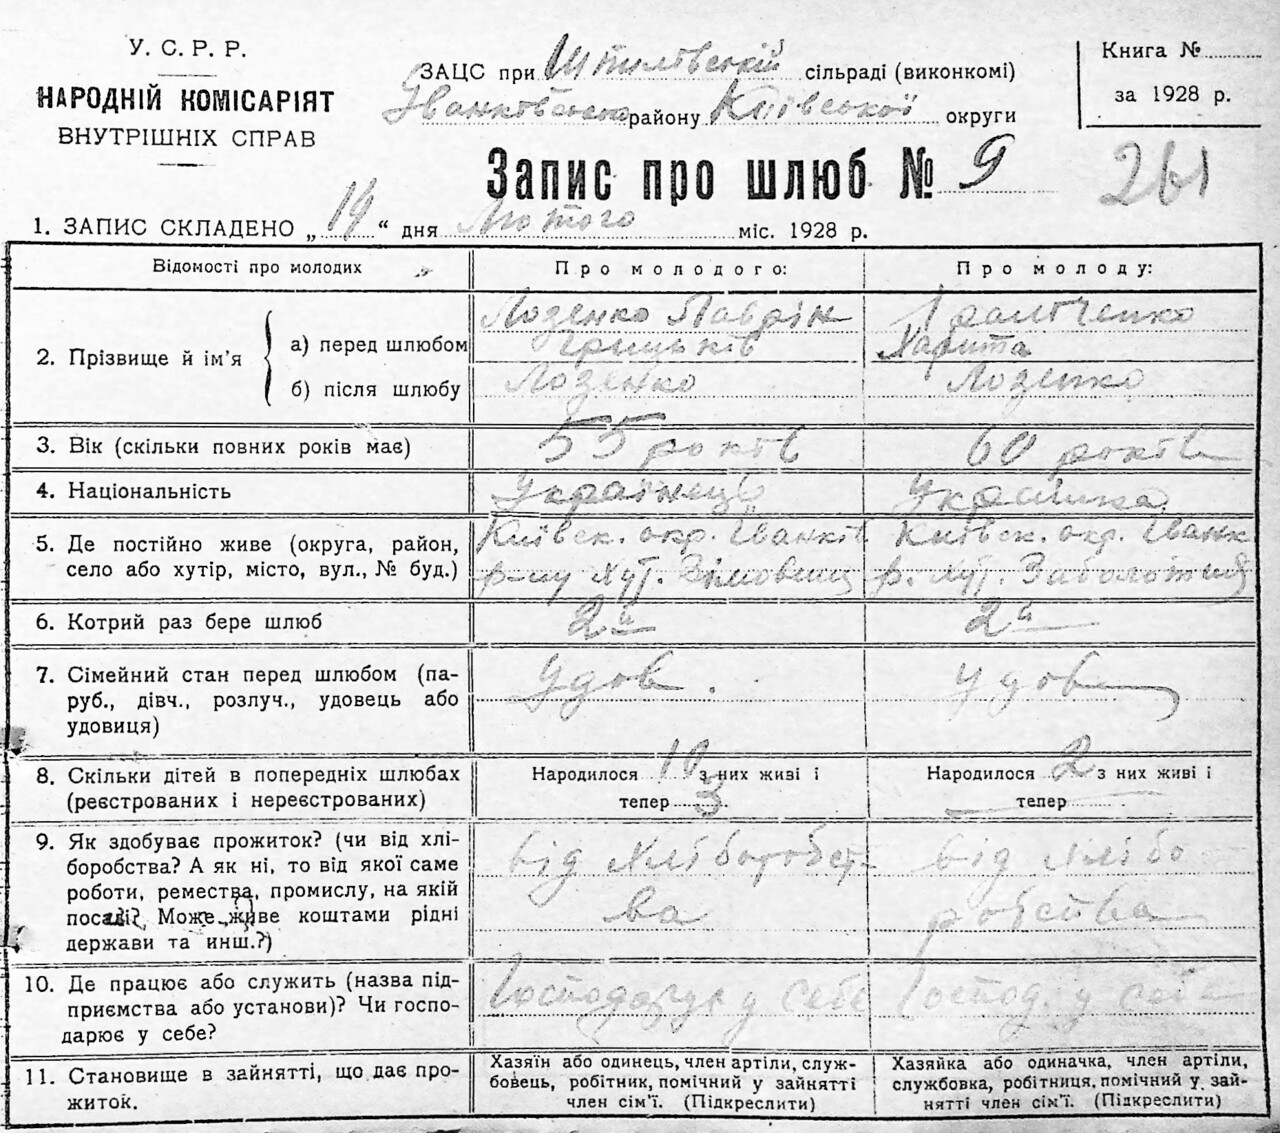 У. С. Р. Р.
НАРОДНІЙ КОМІСАРІЯТ
ВНУТРІШНІХ СПРАВ
ЗАЦС при Шпилівській сільраді (виконкомі)
Іванківського району Київської округи
Книга №
за 1928 р.
Запис про шлюб № 9
261
1. ЗАПИС СКЛАДЕНО „14“ дня Лютого міс. 1928 р.
Відомості про молодих
Про молодого:
Про молоду:
2. Прізвище й ім’я
а) перед шлюбом
Лозенко Лаврін
Грицьків
Харита
б) після шлюбу
Лозенко
Лозенко
3. Вік (скільки повних років має)
55 років
60 років
4. Національність
Українець
Українка
5. Де постійно живе (округа, район,
село або хутір, місто, вул., № буд.)
Київск. окр. Іванків
р-ну Хут.
Київск. окр. Іванк
р. Хут.
6. Котрий раз бере шлюб
2й
2й
7. Сімейний стан перед шлюбом (па-
руб., дівч., розлуч., удовець або
удовиця)
Удов.
удов
8. Скільки дітей в попередніх шлюбах
(реєстрованих і нереєстрованих)
Народилося 10 з них живі і
тепер 3
Народилося 2 з них живі і
тепер
9. Як здобуває прожиток? (чи від хлі-
боробства? А як ні, то від якої саме
роботи, ремества, промислу, на якій
посаді? Може живе коштами рідні
держави та инш.?)
від Хліборобст
ва
від хлібо
робства
10. Де працює або служить (назва під-
приємства або установи)? Чи госпо-
дарює у себе?
Господарує у себе
Господ. у себе
11. Становище в зайнятті, що дає про-
житок.
Хазяїн або одинець, член артіли, служ-
бовець, робітник, помічний у зайнятті
член сім’ї. (Підкреслити)
Хазяйка або одиначка, член артіли,
службовка, робітниця, помічний у зай-
нятті член сім’ї. (Підкреслити)